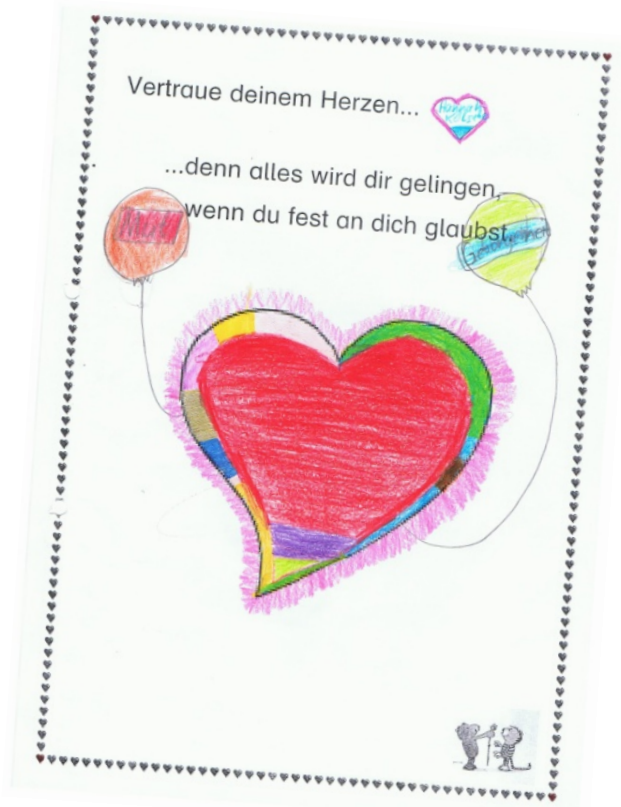 Vertraue deinem Herzen...
Hannah
...denn alles wird dir gelingen,
wenn du fest an dich glaubst.